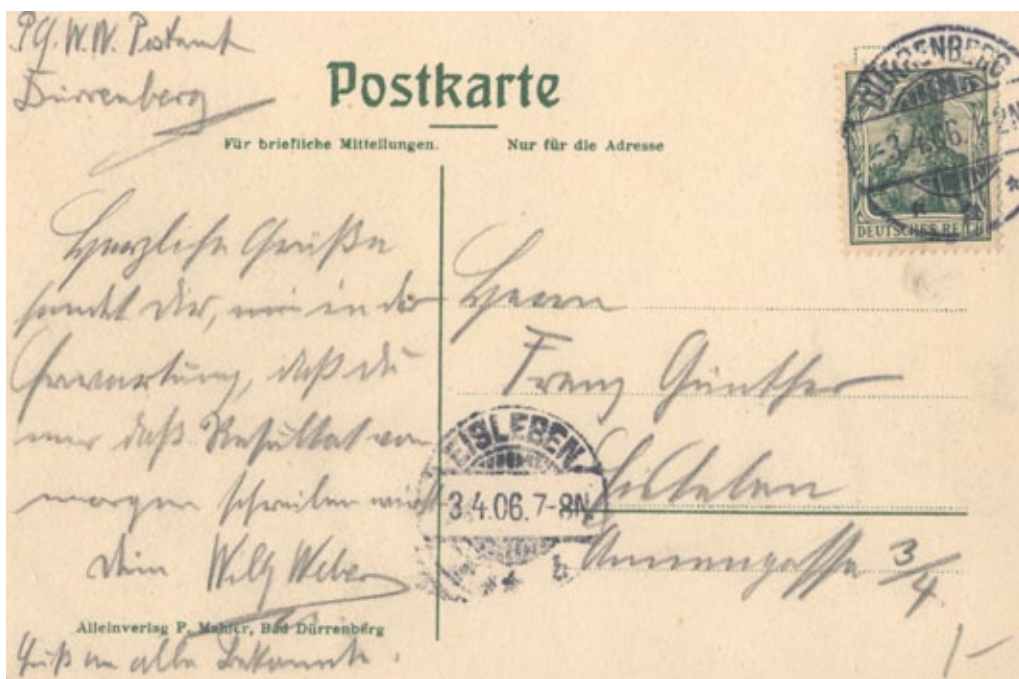 Postamt
Dürrenberg
Postkarte
Für briefliche Mitteilungen.
Nur für die Adresse
DÜRRENBERG
3.4.06. 1-2N
DEUTSCHES REICH
Herzliche Grüße
sendet Dir, in der
Erwartung, daß du
mir daß Resultat von
morgen schreiben wirst
Dein Willy Weber
Alleinverlag P. Mahler, Bad Dürrenberg
Gruß an alle Bekannte.
Herrn
Franz Günther
Eisleben
Annengasse 3/4
EISLEBEN
3.4.06. 7-8N
b